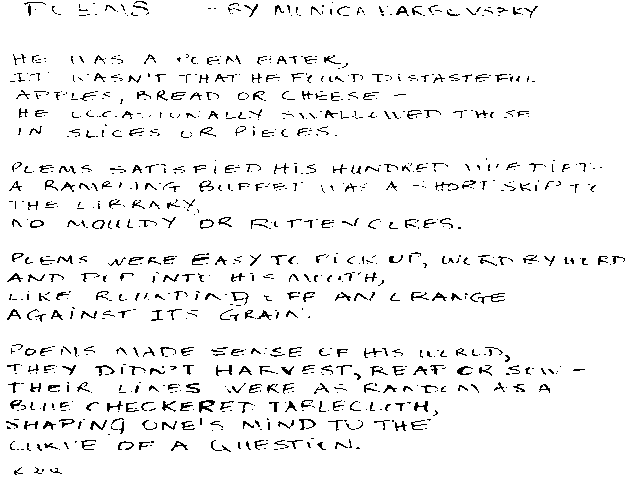 POEMS - BY MONICA KARPOVSZKY
HE WAS A POEM EATER,
IT WASN'T THAT HE FOUND DISTASTEFUL
APPLES, BREAD OR CHEESE -
HE OCCASIONALLY SWALLOWED THESE
IN SLICES OR PIECES.
POEMS SATISFIED HIS HUNGRED
A RAMBLING BUFFET WAS A SHORT SKIP TO
THE LIBRARY,
NO MOULDY OR ROTTEN CORES.
POEMS WERE EASY TO PICK UP, WORD BY WORD
AND POP INTO HIS MOUTH,
LIKE ROUNDING OFF AN ORANGE
AGAINST ITS GRAIN.
POEMS MADE SENSE OF HIS WORLD,
THEY DIDN'T HARVEST, REAP OR SOW -
THEIR LINES WERE AS RANDOM AS A
BLUE CHECKERED TABLECLOTH,
SHAPING ONE'S MIND TO THE
CURVE OF A QUESTION.